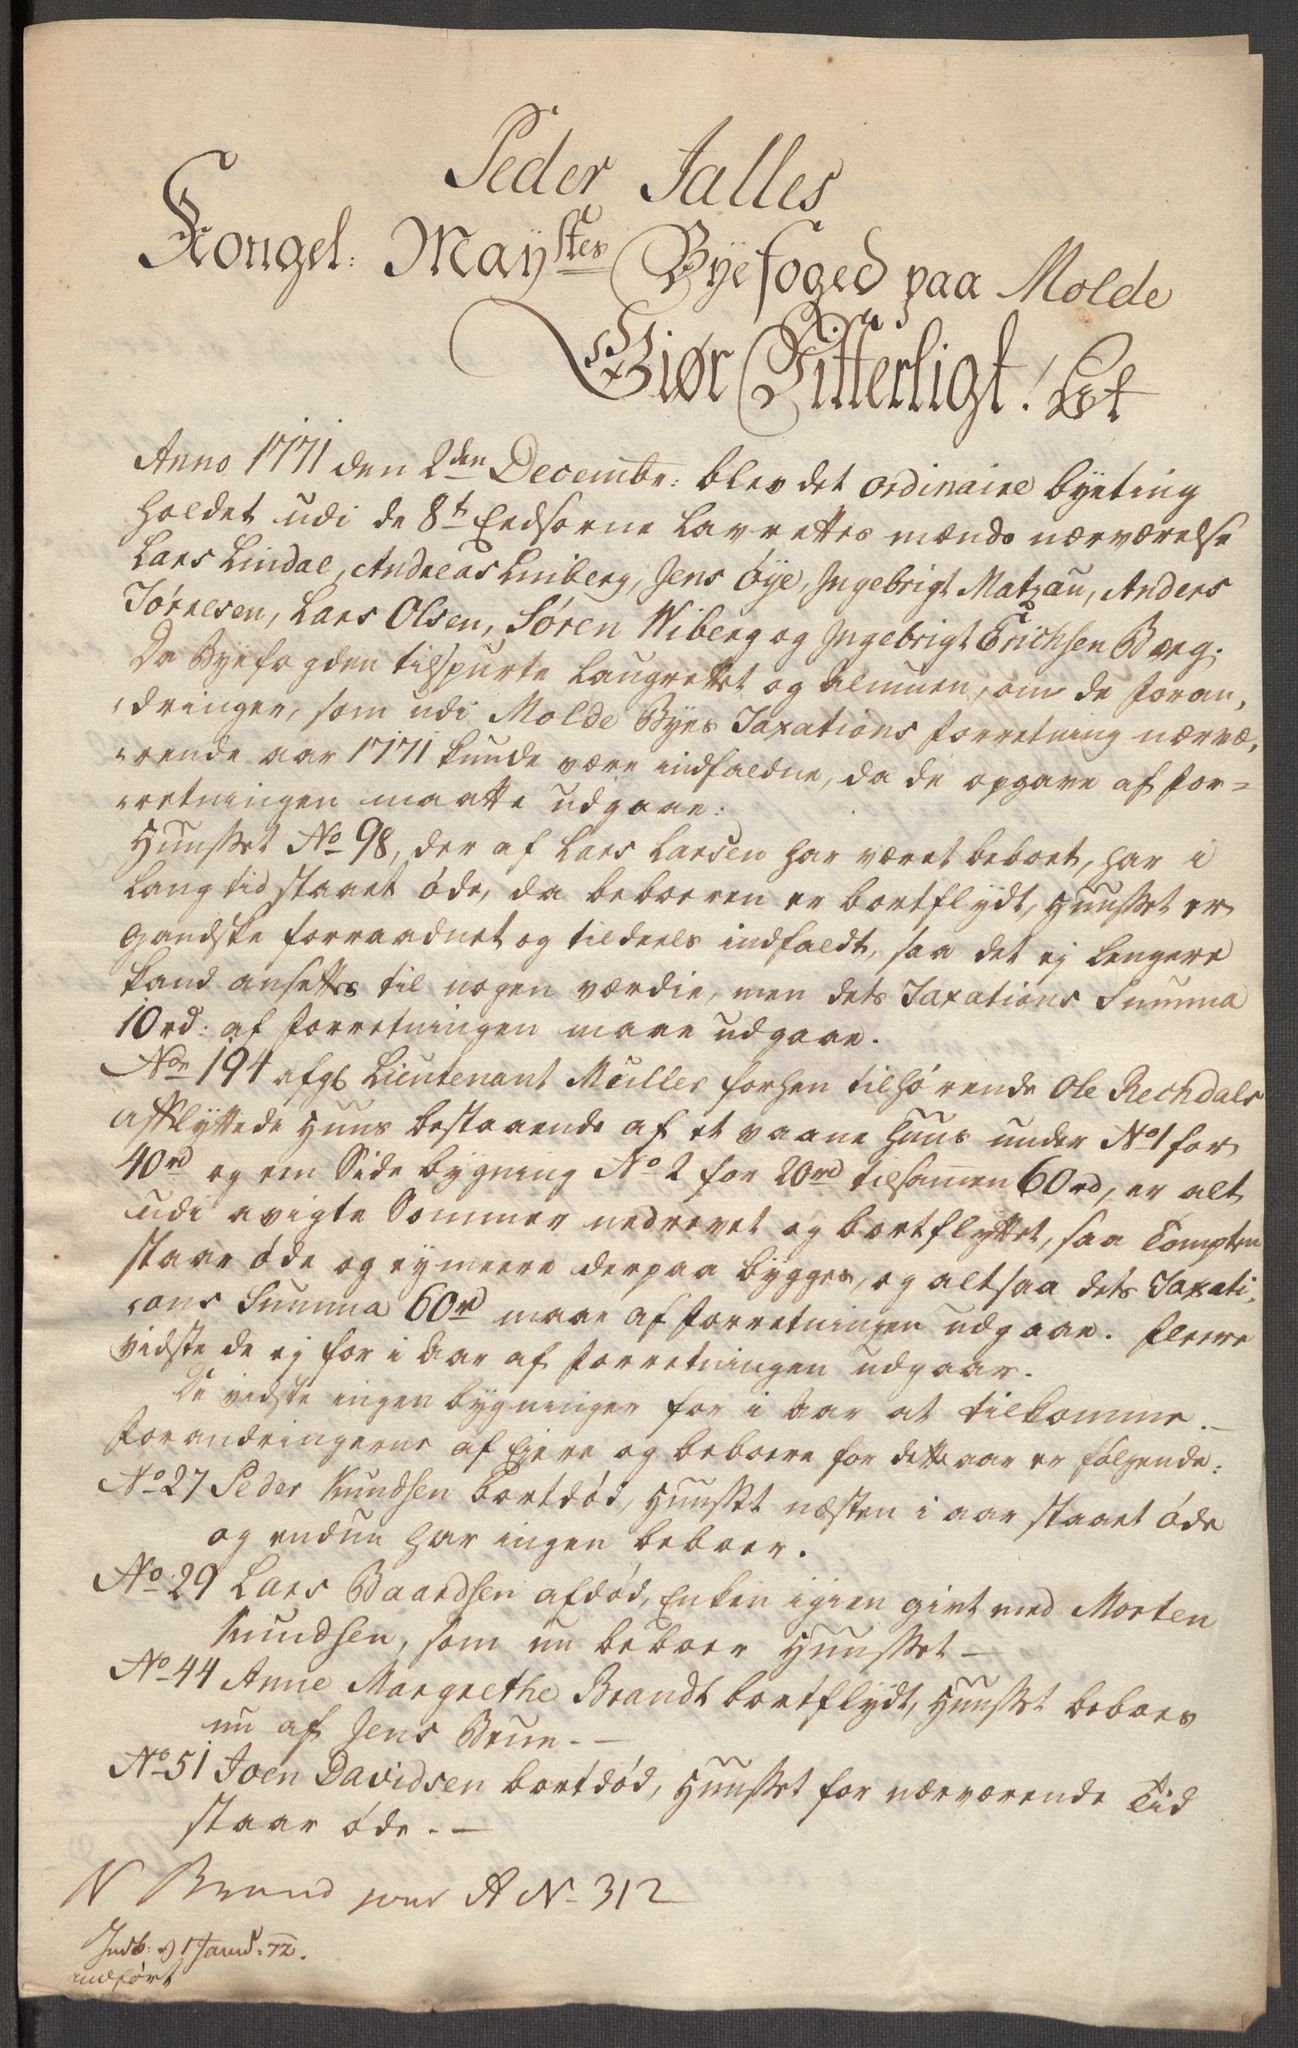 Peder Jalles
Kongel: Mayst̲e̲s̲ Byefoged paa Molde
Giør Vitterligt! At
Anno 1771 den 2den Decembr: blev det ordinaire byeting
holdet udi de 8te Eedsorne Lavrettes mænds nærværelse
Lars Lindal, Andreas Liniberg, Jens Øye, Ingebrigt Matzau, Anders
Jørnsen, Lars Olsen, Søren Wiberg og Ingebrigt Erichsen Barg.
Da Byefogden tilspurte Laugrettet og Almuen, om de foran,
dringer, som udi Molde Byes Taxations forretning nærvæ,
rende aar 1771 kunde være indfaldne, da de opgave af for=
retningen maatte udgaae:
Huusset No 98, der af Lars Larsen har været beboet, har i
Lang tid staaet øde, da beboeren er bortflydt, Huusset er
gandske forraadnet og tildeels indfaldt, saa det ej lengere
kand ansettes til nogen værdie, men dets Taxations Summa
10rd: af forretningen maae udgaae.
No 194 afgl Lieutenant Muller forhen tilhørende Ole Rechdals
afflyttede Huus bestaaende af et vaane Huus under No 1 for
40rd og em Side bygning No 2 for 20rd tilsamen 60rd, er alt
udi avigte Sommer nedrevet og bortflyttet, saa Tompten
staar øde og ey meere derpaa bygges, og altsaa dets Taxati,
ons Summa 60rd maae af forretningen udgaae. Fleere
vidste de ej for i Aar af forretningen udgaar.
De vidste ingen bygninger for i Aar at tilkomme.–
Forandringerne af Ejere og beboere for dette aar er følgende:
No 27 Peder Knudsen bortdød, Huusset næsten i aar staaet øde
og endnu har ingen beboer.
No 29 Lars Baardsen afdød, Enken igien givt med Morten
Knudsen, som nu beboer Huusset –
No 44 Anne Margrethe Brandt bortflydt, Huusset beboes
nu af Jens Brun. –
No 51 Joen Davidsen bortdød, Huusset for nærværende Tid
staar øde. –
N Brand jour A N– 312
Indb: d 1 Janud. 72.
indført